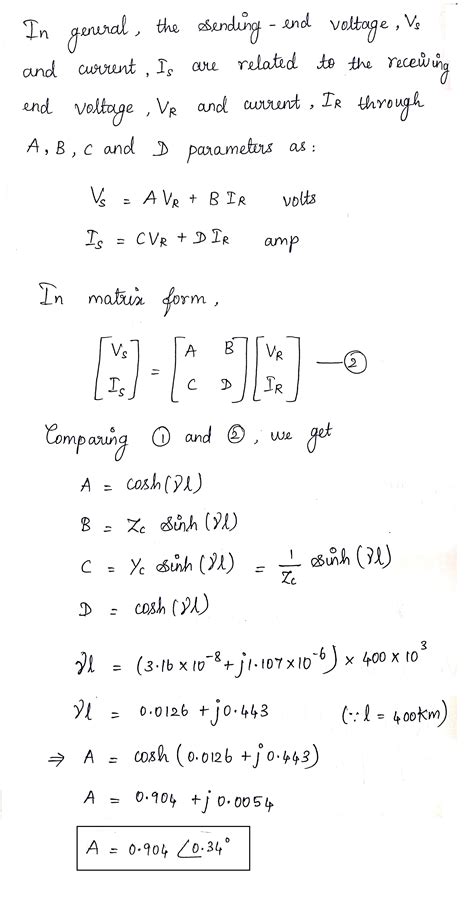 In general, the sending-end voltage, Vs
and current, Is are related to the receiving
end voltage, VR and current, IR through
A, B, C and D parameters as:
Vs = A VR + B IR volts
Is = CVR + D IR amp
In matrix form,
[Vs Is] = [A B C D] [VR IR] — ②
Comparing ① and ②, we get
A = cosh(γl)
B = Zc sinh(γl)
C = Yc sinh(γl) = 1/Zc sinh(γl)
D = cosh(γl)
γl = (3.16 × 10⁻⁸ + j1.107 × 10⁻⁶) × 400 × 10³
γl = 0.0126 + j0.443 (∵ l = 400Km)
⇒ A = cosh(0.0126 + j0.443)
A = 0.904 + j0.0054
A = 0.904 ∠0.34°